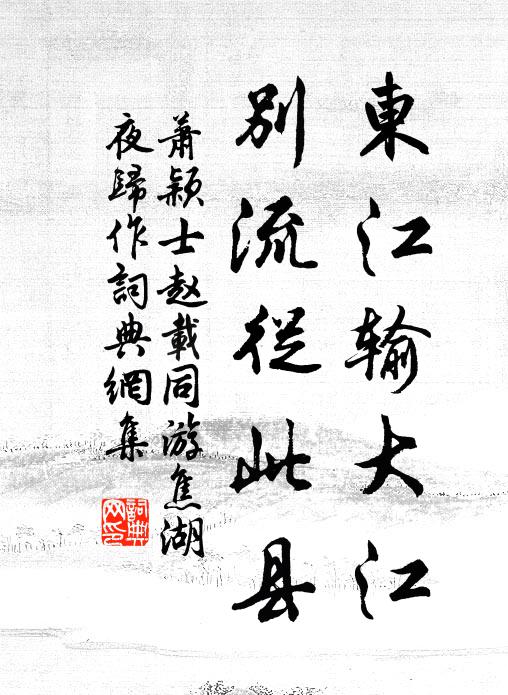 東江输大江
别流從此县
蕭颖士赵載同游焦湖
夜歸作詞典網集
詞典
网印